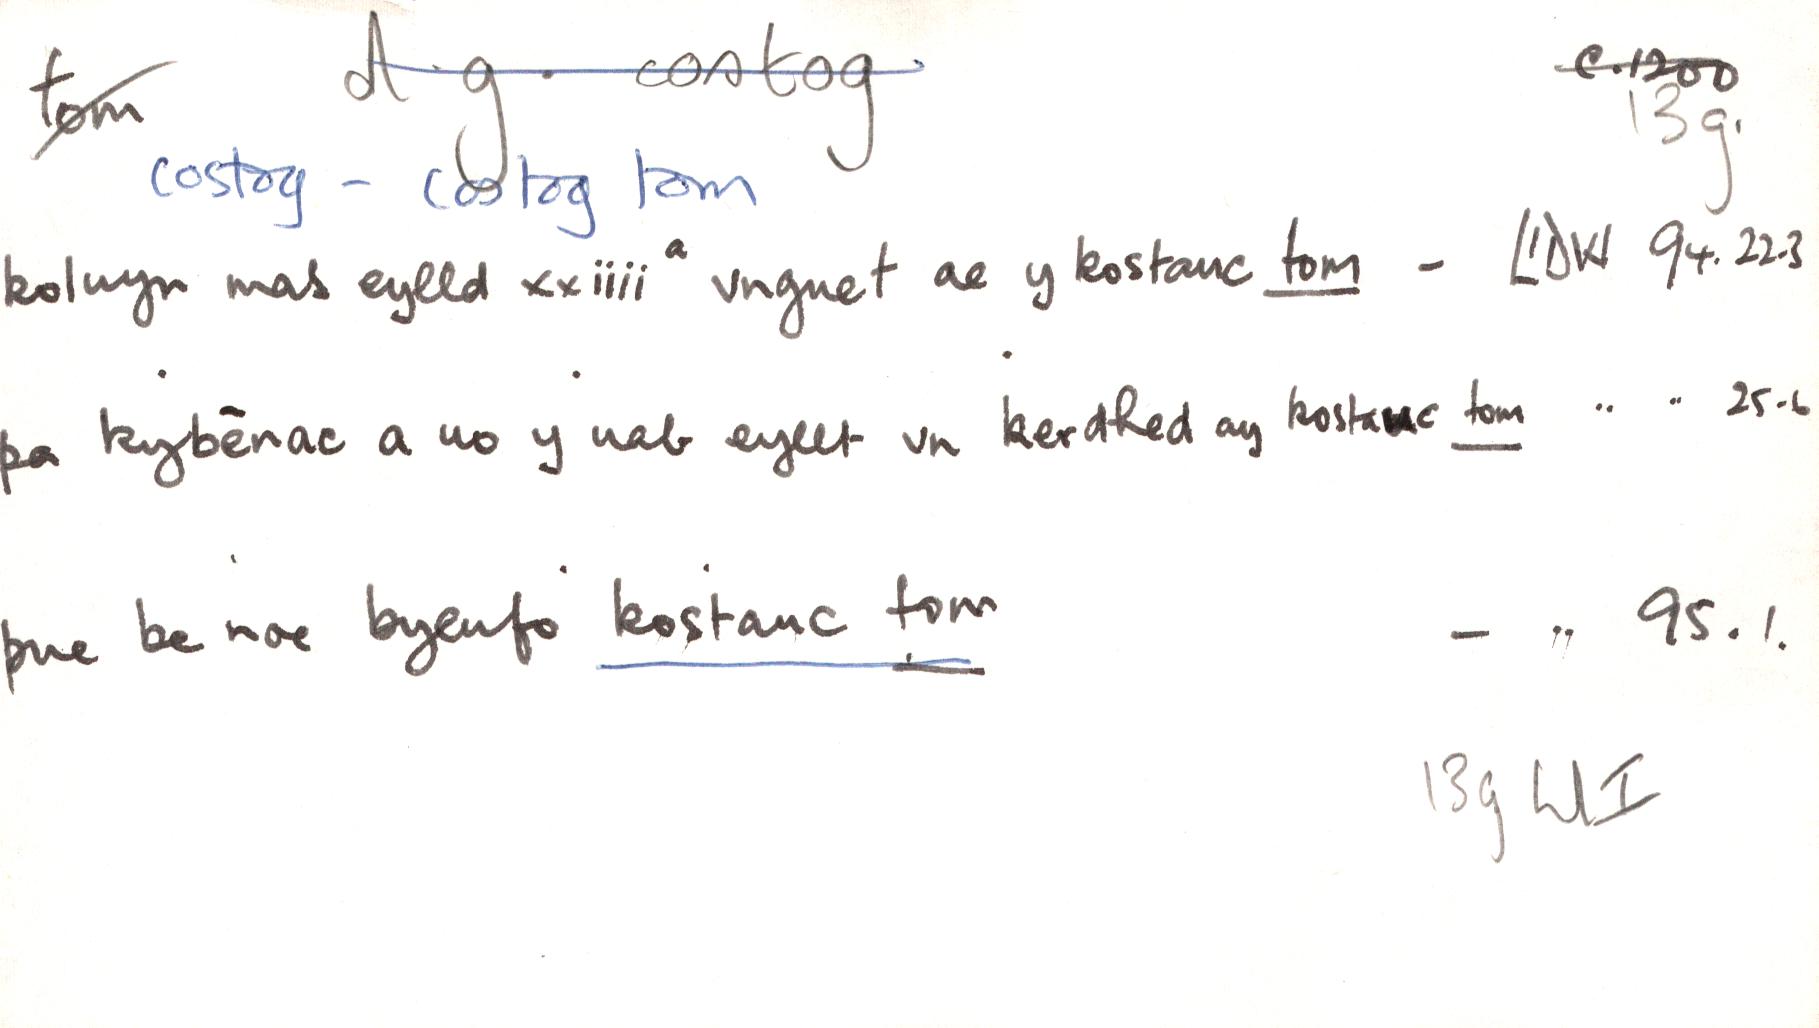 tom d.g. costog c.1200
13g.
costog - costog tom
koluyn mab eylld xxiiii a vnguet ae y kostauc tom - LlDW 94.22-3
pa kybēnac a uo y uab eyllt vn kerdhed ay kostauc tom " " 25-6
pue be noe byeufo kostauc tom - " 95.1.
13g LlI